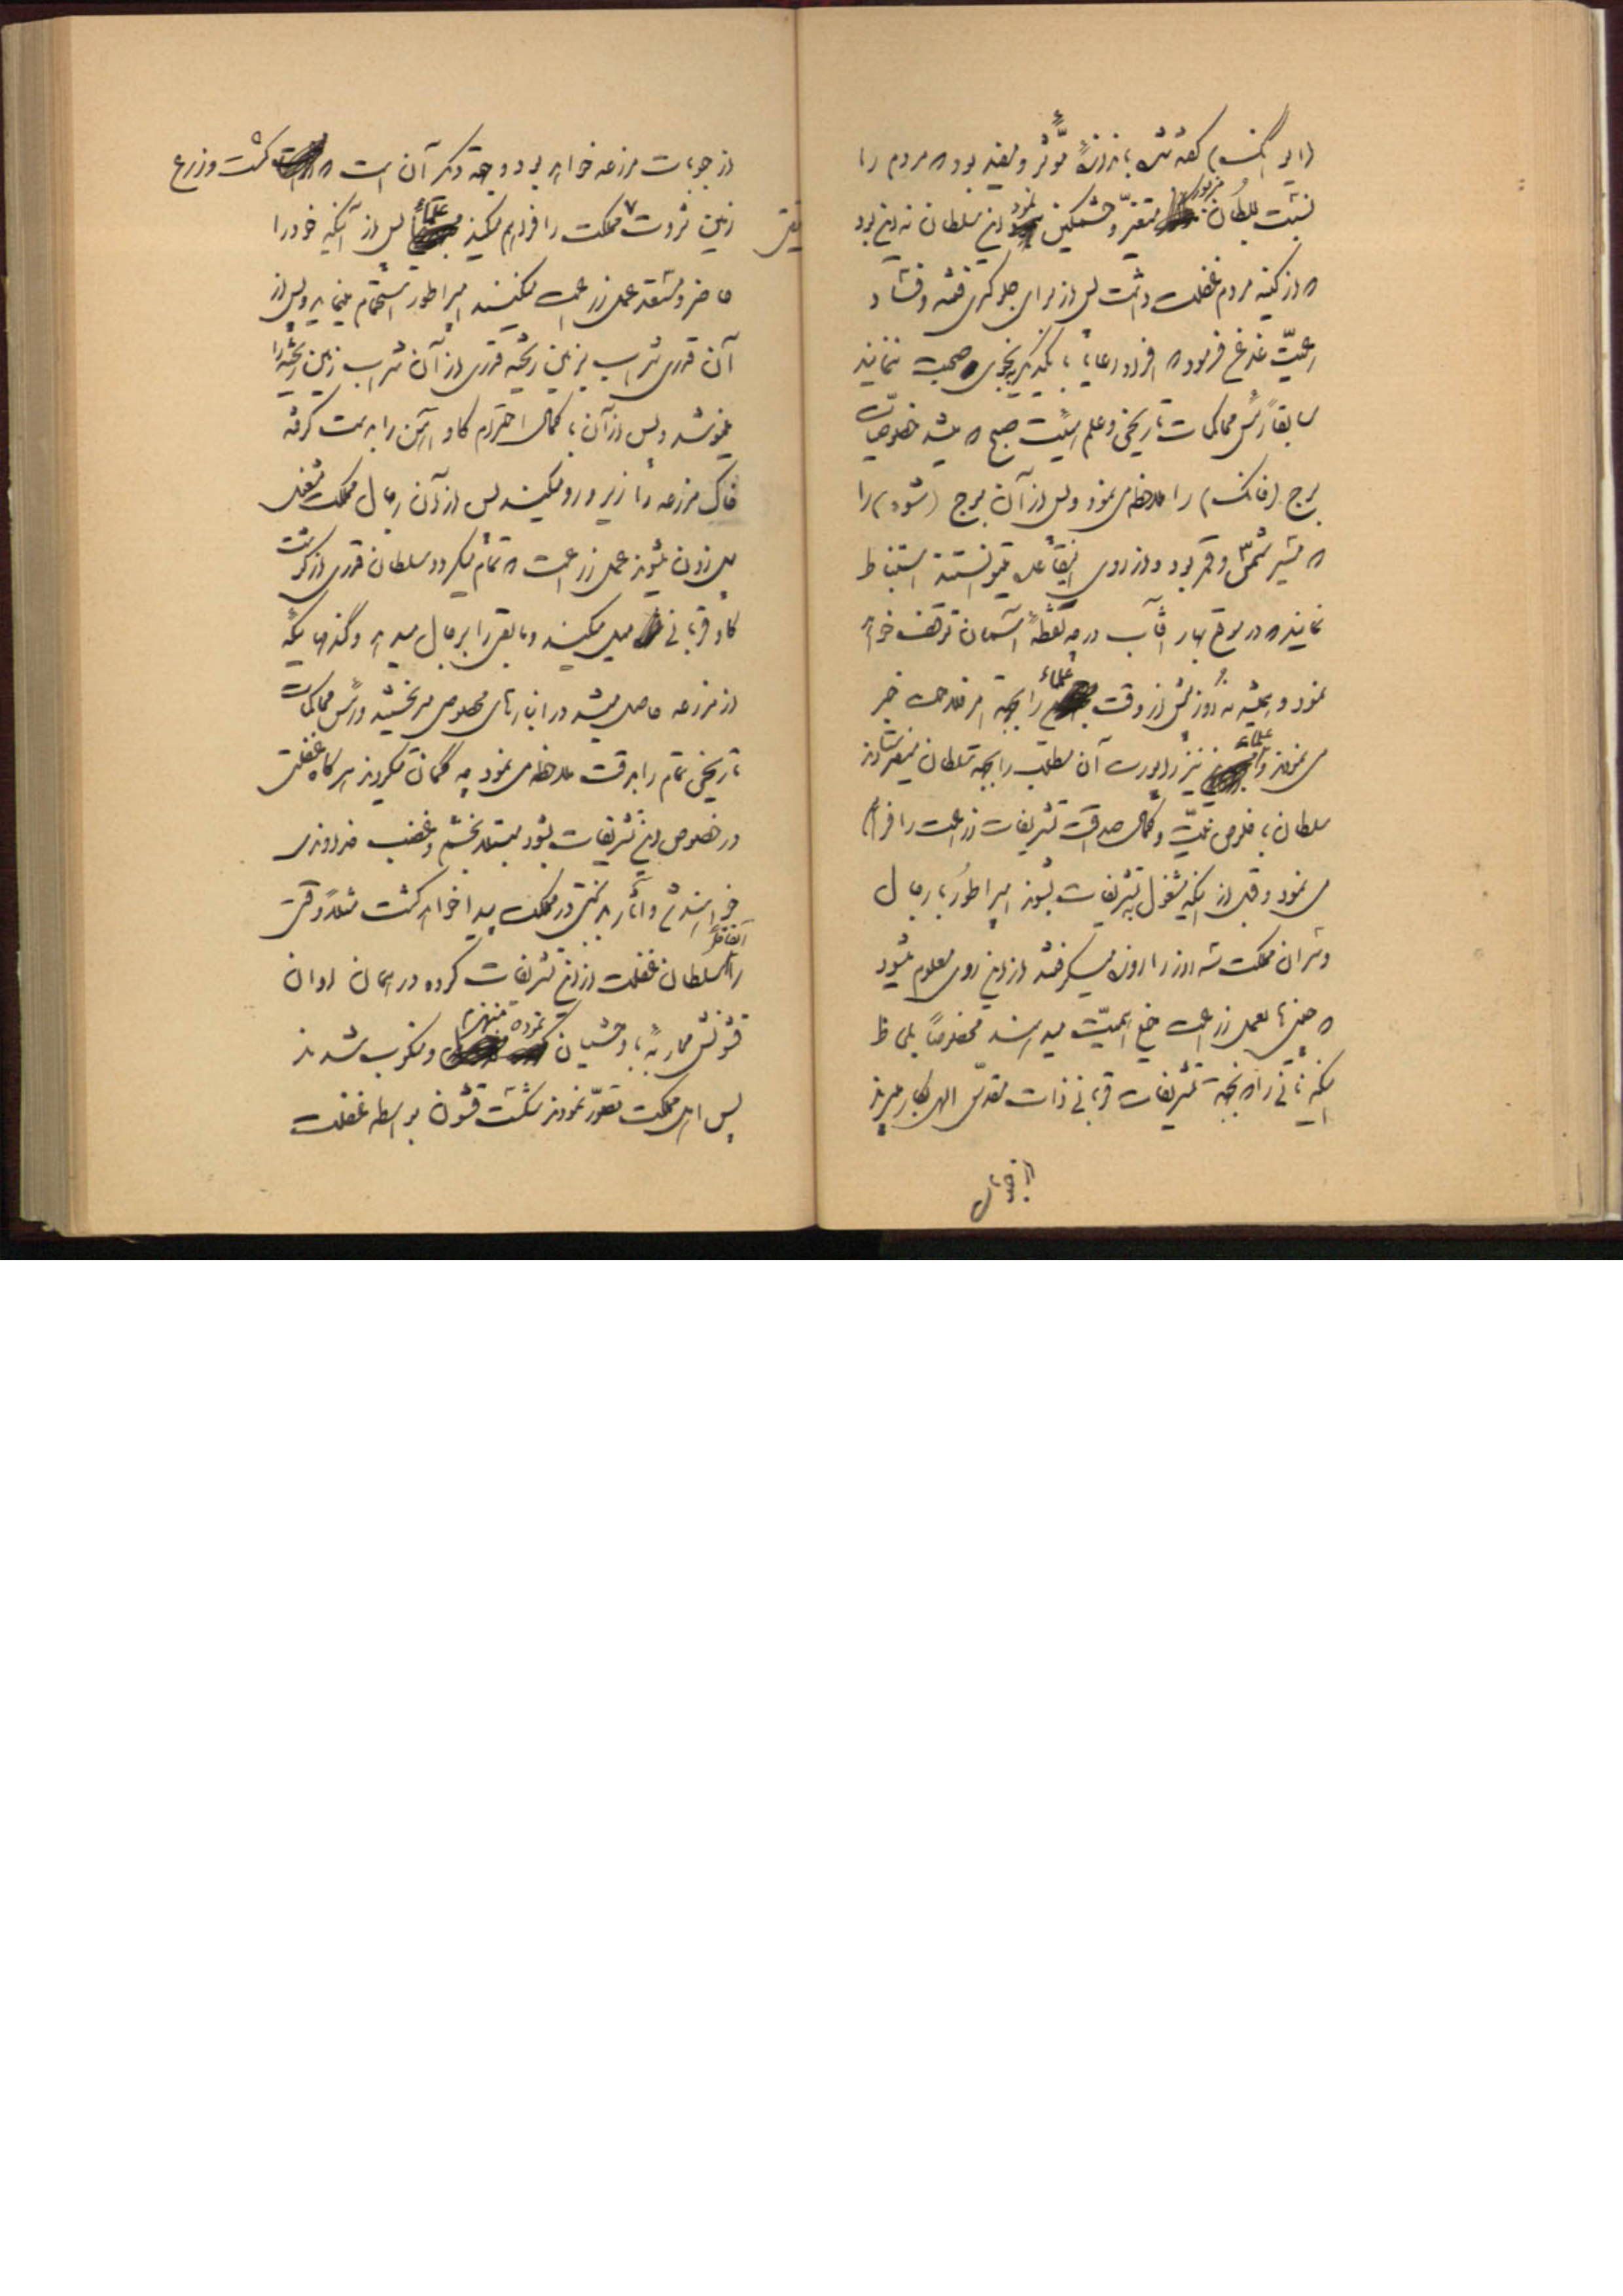 گفته‌شان باندازهٔ مؤثر و مفید بود که مردم را
نسبت بسلطان مزبور متغیّر و خشمگین نمود این سلطان نه این بود
که از کینه مردم غفلت داشت پس از برای جلوگیری فتنه و فساد
رعیّت غدغن فرمود که افراد رعایا با یکدیگر بنجوی صحبت ننمایند
سابقاً رئیس محاکمات تاریخی و علم هیئت صبح که میشد خصوصیّات
برج را ملاحظه می‌نمود و پس از آن برج را
که مشیر شمس و قمر بود و از روی میتوانستند استنباط
نمایند که در موقع بهار آفتاب در چه نقطهٔ آسمان توقف خواهد
نمود و همیشه نه روز پیش از وقت علماء را بجهة امر فلاحت خبر
می‌نمودند و علماء نیز راپورت آن مطلب را بجهة سلطان میفرستادند
سلطان با خلوص نیّت و کمال صداقت تشریفات زراعت را فراهم
می‌نمود و قبل از اینکه مشغول بتشریفات بشوند امپراطور با رجال
و سران مملکت سه روز را روزه میگرفتند از این روی معلوم میشود
که چینی‌ها بعمل زراعت خیلی اهمیّت میدادند مخصوصاً بملاحظه
اینکه نانی را که بجهة تشریفات قربانی ذات مقدّس الهی بکار میبرند
از حبوبات مزرعه خواهد بود و جهة دیگر آن است که کشت و زرع
زمین ثروت مملکت را فراهم میکند علماء پس از آنکه خود را
حاضر و مستعد عمل زراعت میکنند امپراطور استحمام مینماید و پس از
آن قدری شراب بزمین ریخته قدری از آن شراب زمین ریخته را
مینوشد و پس از آن با کمال احترام گاو آهن را بدست گرفته
خاک مزرعه را زیر و رو میکند پس از آن رجال مملکت مشغول
بیل زدن میشوند عمل زراعت که تمام میگردد سلطان قدری از گوشت
گاو قربانی میل میکند و مابقی را برجال میدهد و گندمهائیکه
از مزرعه حاصل میشد در انبارهای مخصوص می‌بخشید و رئیس محاکمات
تاریخی تمام را بدقت ملاحظه می‌نمود چه گمان میکردند هرگاه غفلتی
در خصوص این تشریفات بشود مبتلا بخشم و غضب خداوندی
خواهند شد و آثار بدبختی در مملکت پیدا خواهد گشت مثلاً وقتی
را سلطان غفلت از این تشریفات کرده در همان اوان اتفاقاً
قشونش محاربهٔ با وحشیان نموده منهزم و منکوب شدند
پس اهل مملکت تصوّر نمودند شکست قشون بواسطه غفلت